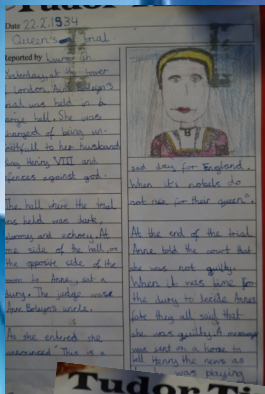 Tudor
Date 22.2.1534
Queen's Trial
Reported by
Yesterday, at the tower
London, Ann Boleyn's
trial was held in a
large hall. She was
charged of being un-
faithfull to her husband
King Henry VIII and
offences against god.
The hall where the trial
was held was dark,
gloomy and echoey. At
one side of the hall, on
the opposite side of the
room to Anne, sat a
jury. The judge was
Ann Boleyn's uncle.
As she entered she
announced "This is a
sad day for England.
When it's nobels do
not rise for their queen".
At the end of the trial
Anne told the court that
she was not guilty.
When it was time for
the jury to decide Annes
fate they all said that
she was guilty. A message
was sent on a horse to
tell Henry the news as
he was playing
Tudor Ti